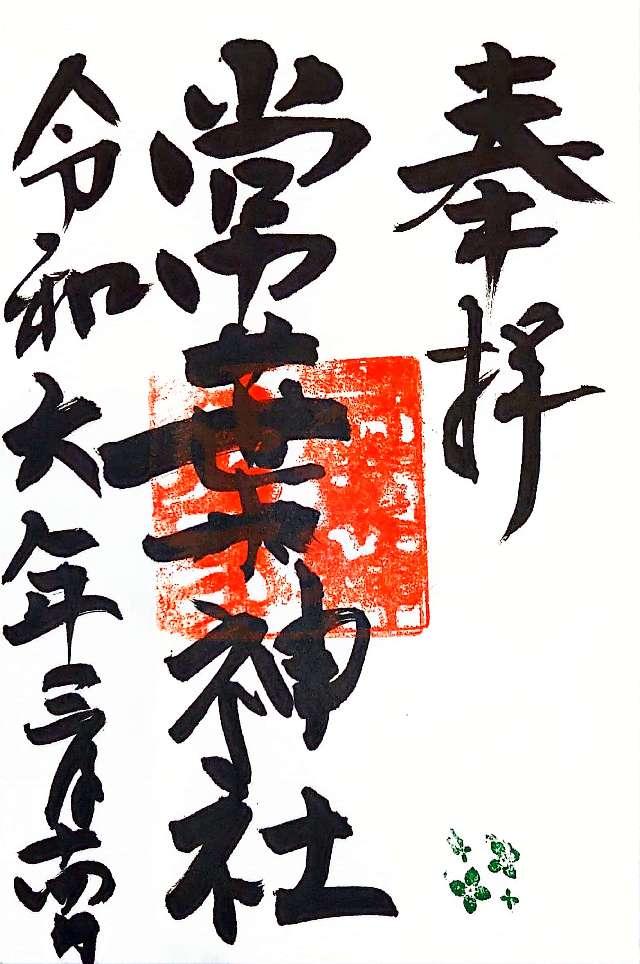 奉拝
常葉神社
令和六年三月十四日